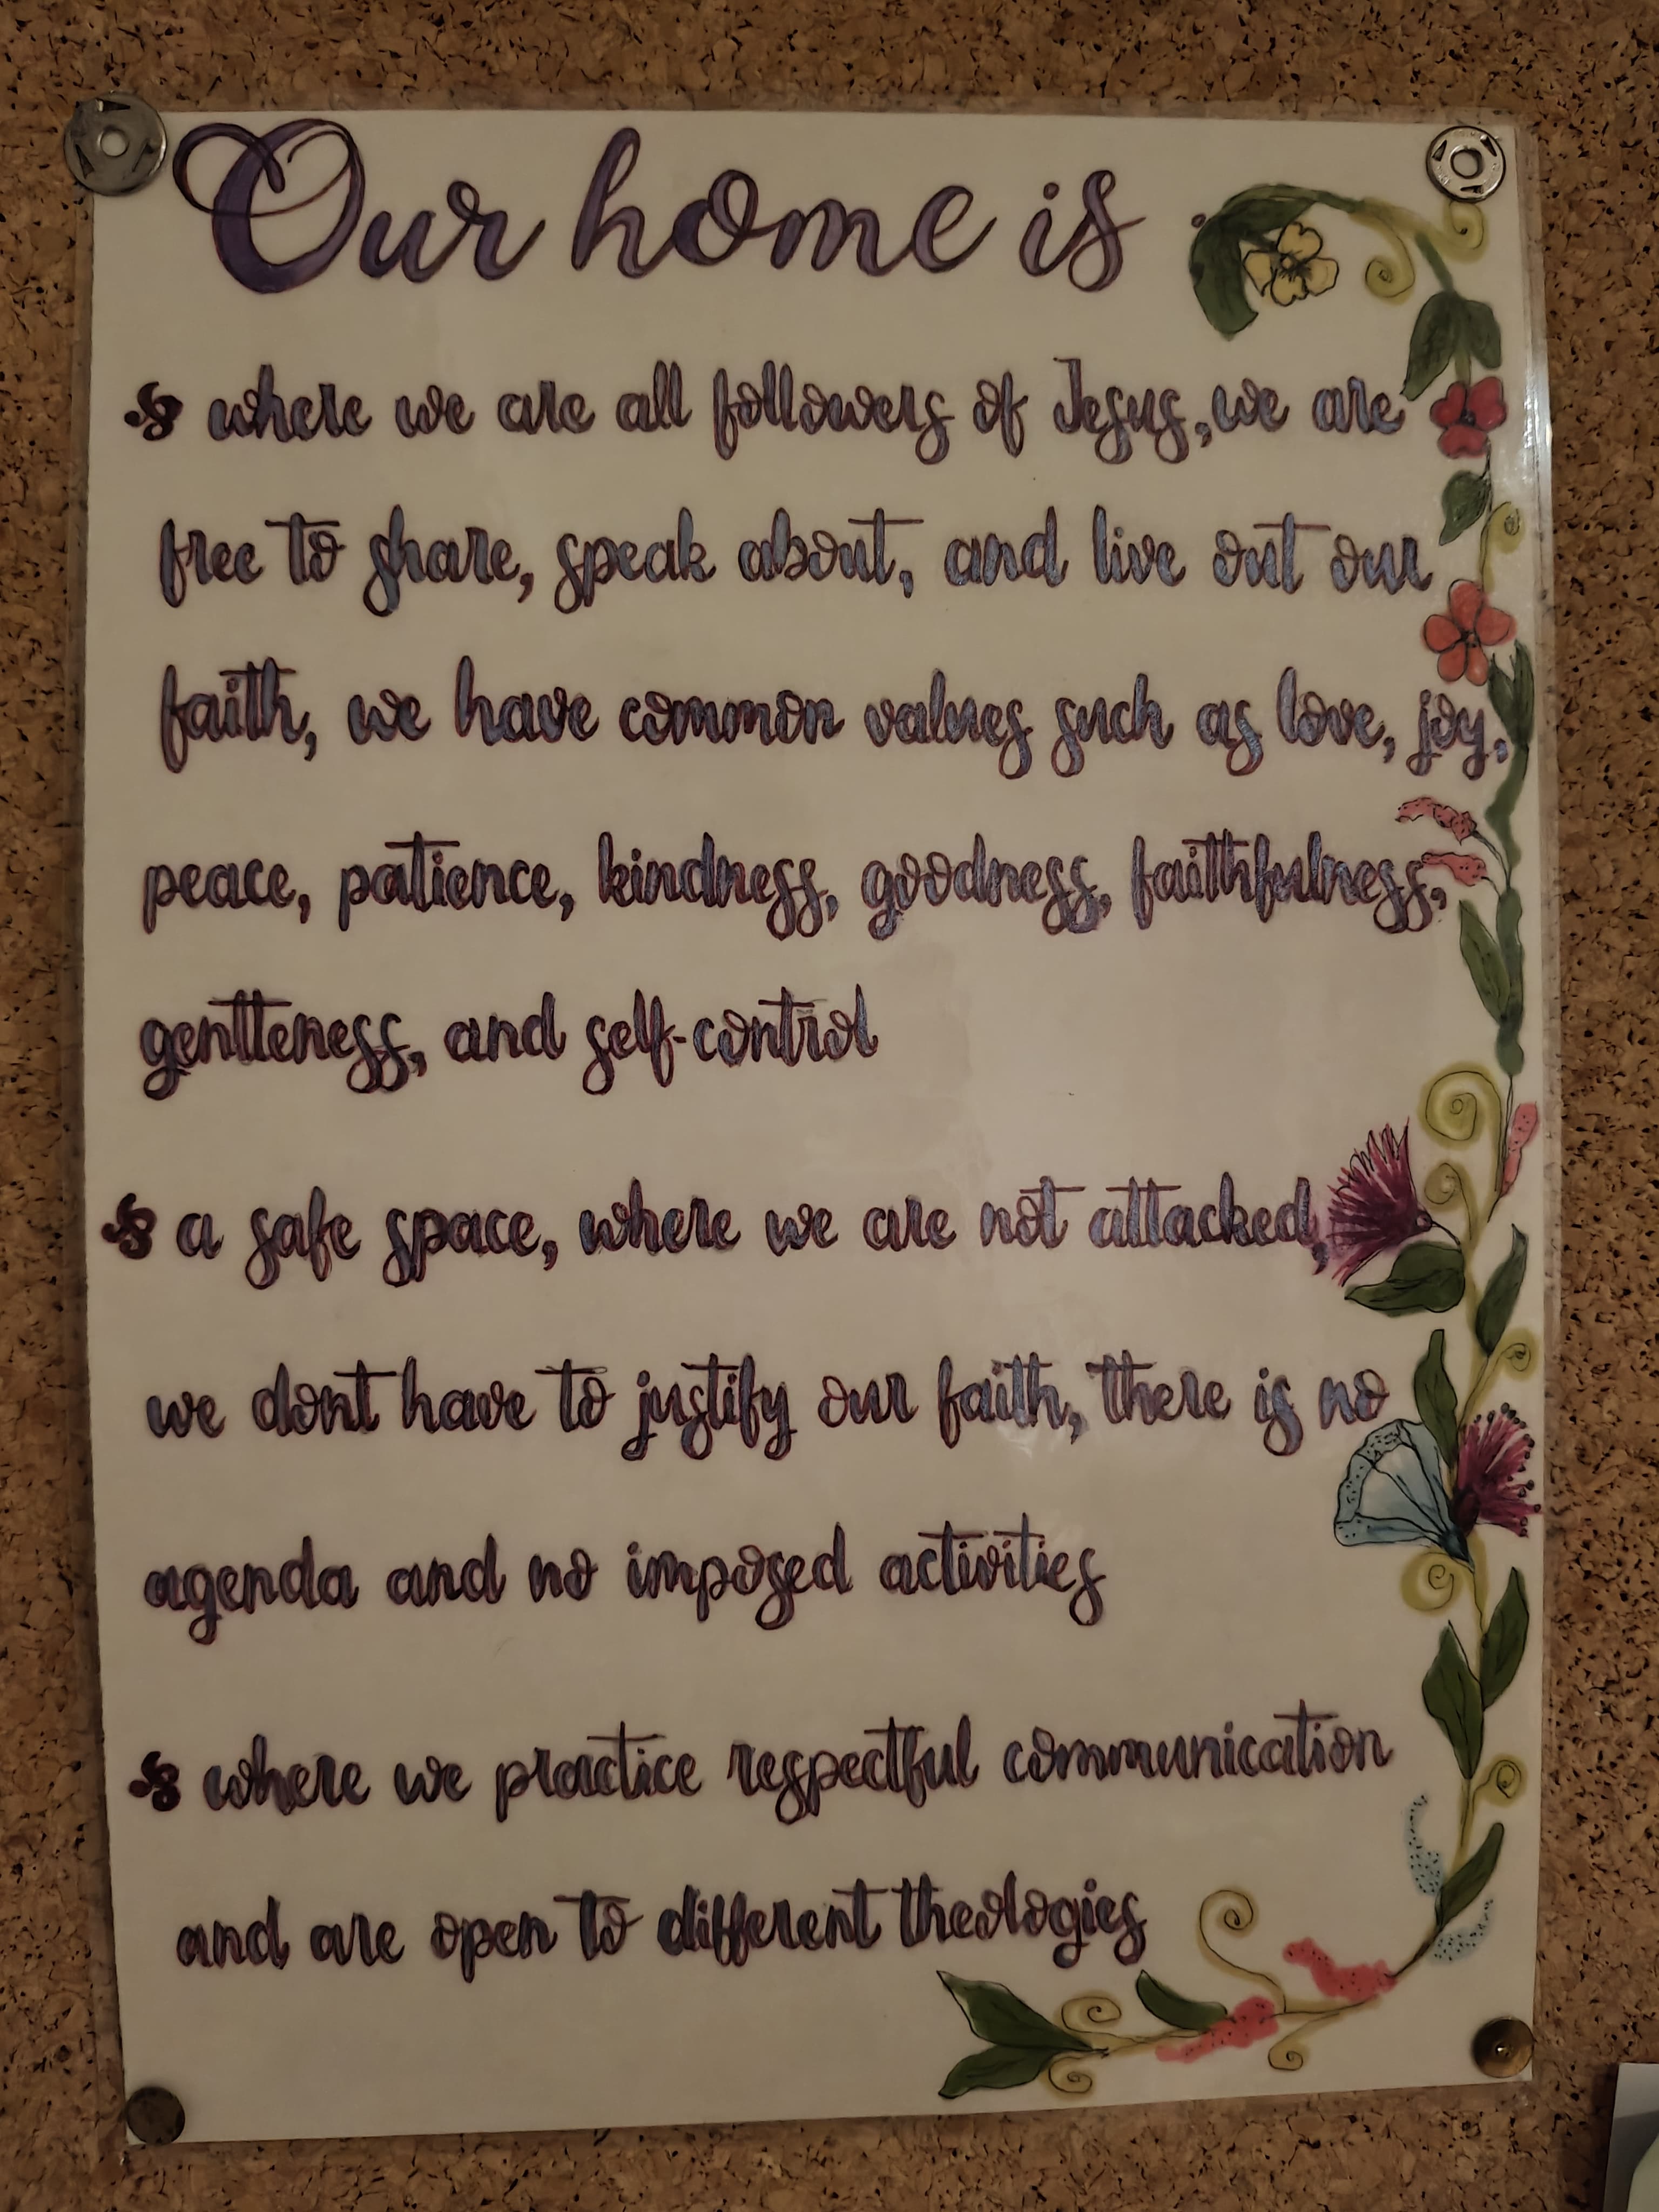 Our home is :
where we are all followers of Jesus, we are
free to share, speak about, and live out our
faith, we have common values such as love, joy,
peace, patience, kindness, goodness, faithfulness,
gentleness, and self-control
a safe space, where we are not attacked,
we dont have to justify our faith, there is no
agenda and no imposed activities
where we practice respectful communication
and are open to different theologies